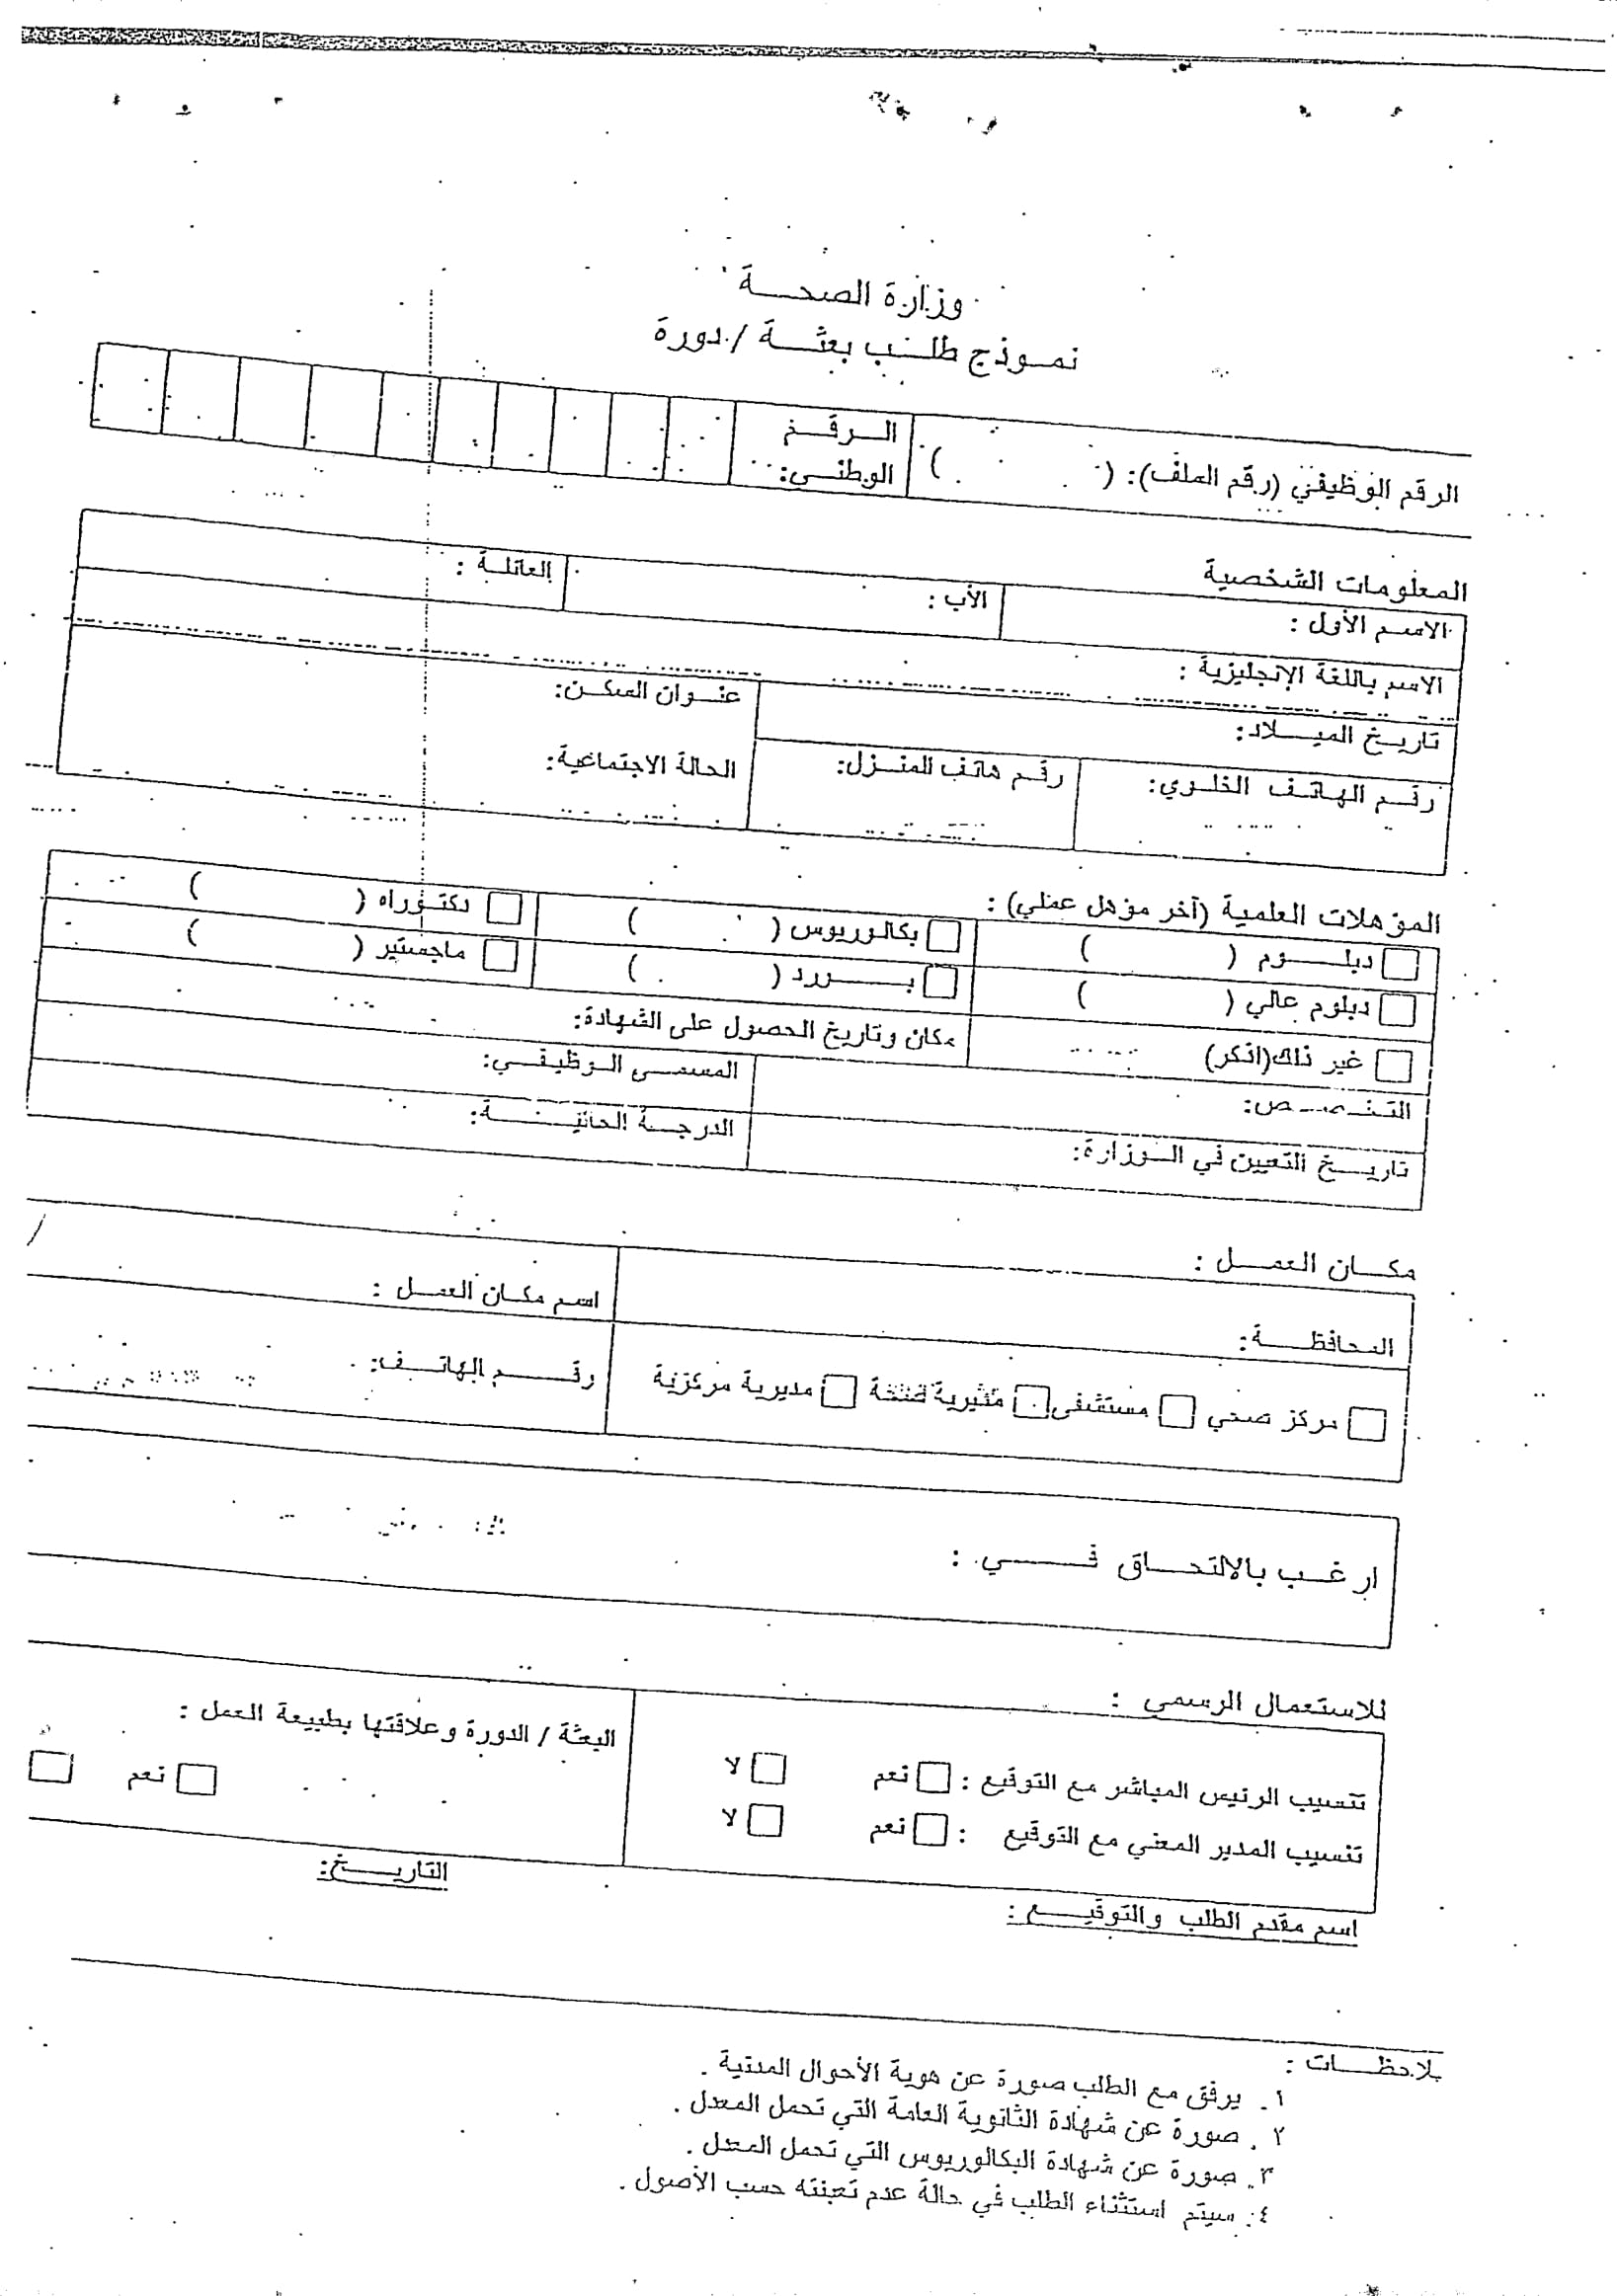 وزارة الصحة
نموذج طلب بعثة / دورة
الرقم الوظيفي (رقم الملف): ( ) الرقم الوطني:
المعلومات الشخصية
الاسم الأول : الأب : العائلة :
الاسم باللغة الإنجليزية :
تاريخ الميلاد: عنوان السكن:
رقم الهاتف الخلوي: رقم هاتف المنزل: الحالة الاجتماعية:
المؤهلات العلمية (آخر مؤهل عملي) :
دبلوم ( ) بكالوريوس ( ) دكتوراه ( )
دبلوم عالي ( ) بورد ( ) ماجستير ( )
غير ذلك(اذكر) مكان وتاريخ الحصول على الشهادة:
التخصص: المسمى الوظيفي:
تاريخ التعيين في الوزارة: الدرجة الحالية:
مكان العمل :
المحافظة: اسم مكان العمل :
مركز صحي مستشفى مديرية مديرية مركزية رقم الهاتف:
ارغب بالالتحاق في :
للاستعمال الرسمي :
تنسيب الرئيس المباشر مع التوقيع : نعم لا البعثة / الدورة وعلاقتها بطبيعة العمل :
تنسيب المدير المعني مع التوقيع : نعم لا نعم
اسم مقدم الطلب والتوقيع : التاريخ:
ملاحظات :
١. يرفق مع الطلب صورة عن هوية الأحوال المدنية .
٢. صورة عن شهادة الثانوية العامة التي تحمل المعدل .
٣. صورة عن شهادة البكالوريوس التي تحمل المعدل .
٤. سيتم استثناء الطلب في حالة عدم تعبئته حسب الأصول .